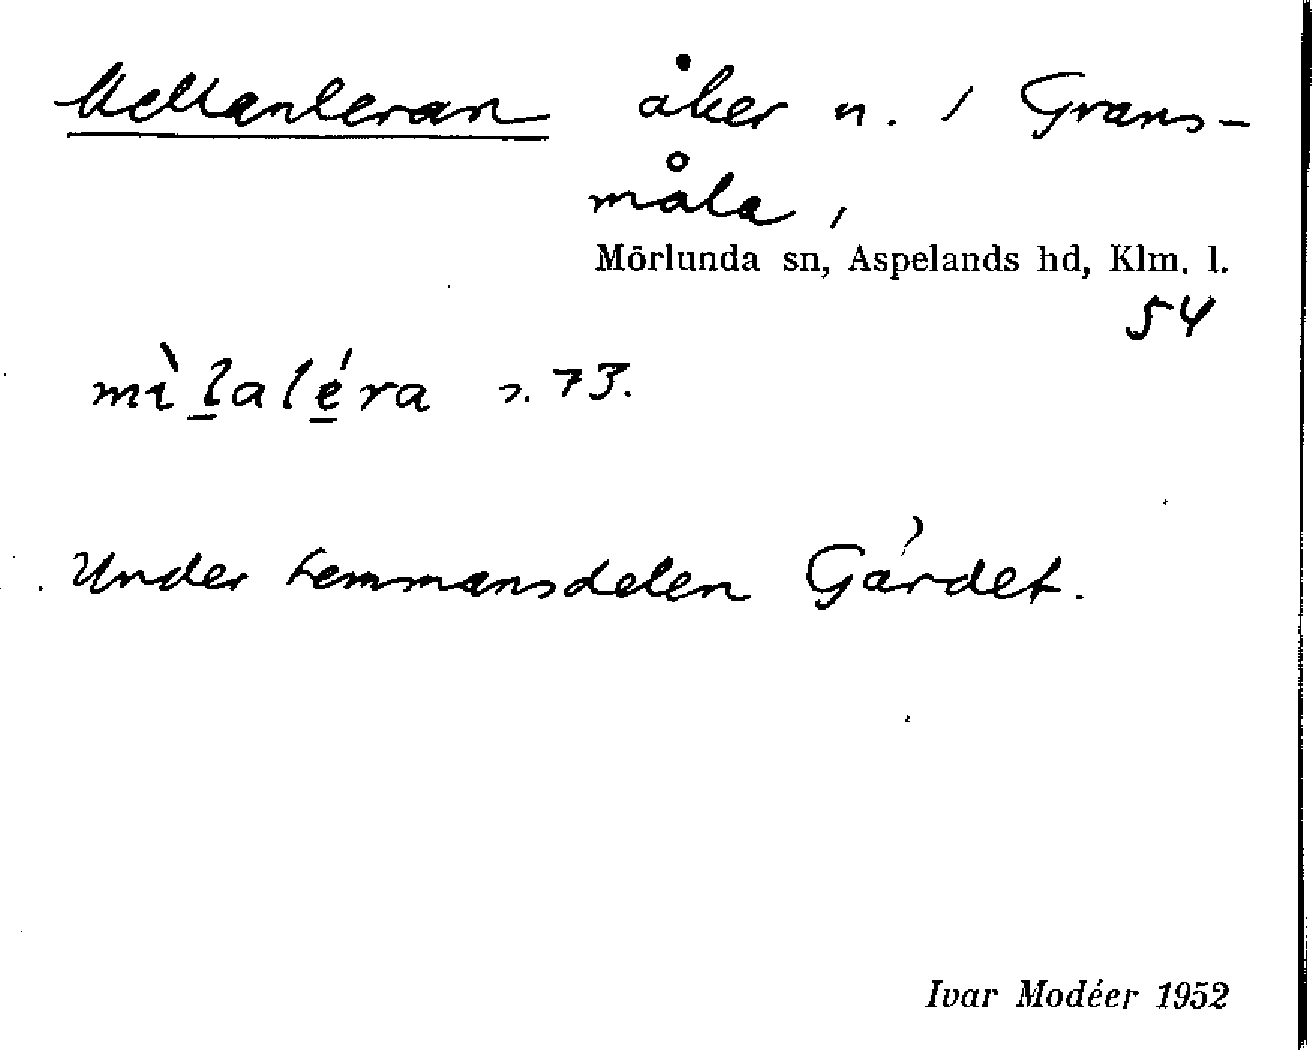 Mellanleran åker n. i Grans-
måla,
Mörlunda sn, Aspelands hd, Klm. l.
54
mìl̲alé̲ra s. 73.
Under hemmansdelen Gärdet.
Ivar Modéer 1952